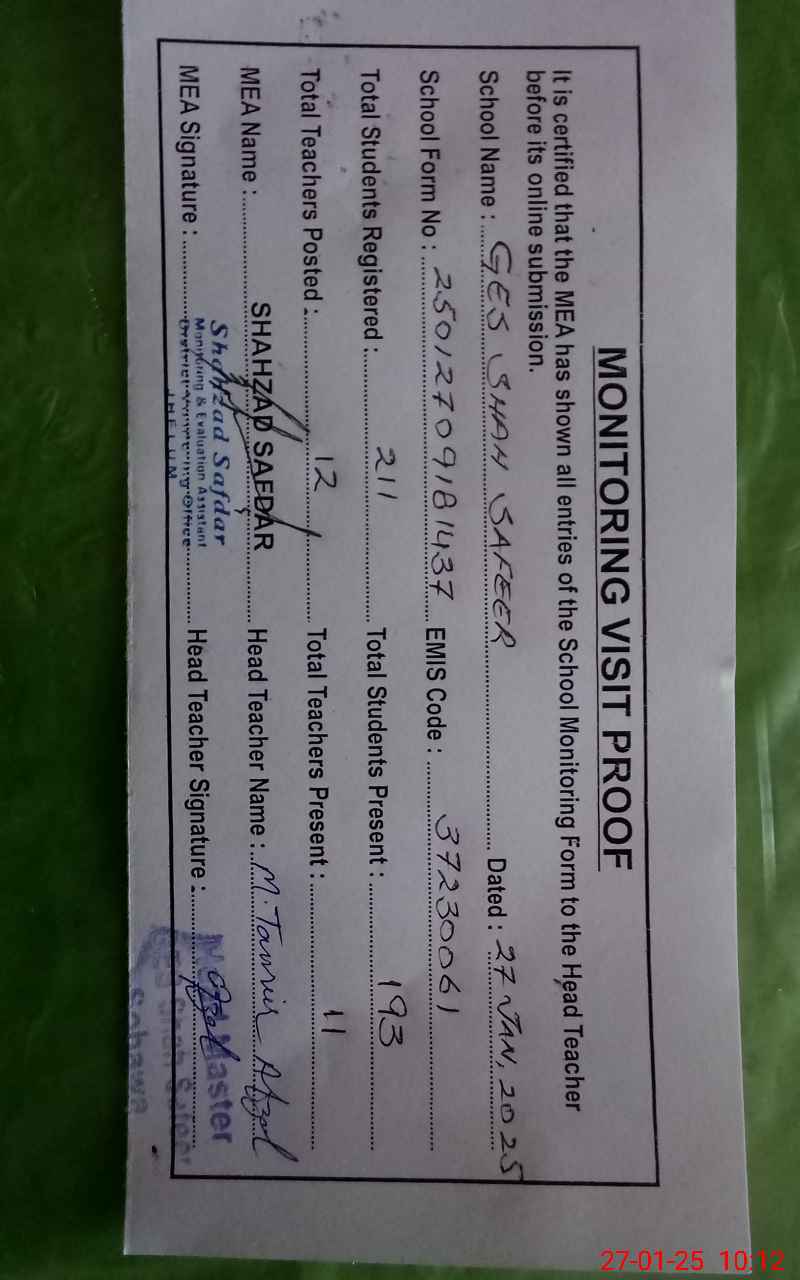 MONITORING VISIT PROOF
It is certified that the MEA has shown all entries of the School Monitoring Form to the Head Teacher
before its online submission.
School Name : GES SHAH SAFEER Dated : 27 JAN, 2025
School Form No : 2501270918 1437 EMIS Code : 37230061
Total Students Registered : 211 Total Students Present : 193
Total Teachers Posted : 12 Total Teachers Present : 11
MEA Name : SHAHZAD SAFDAR Head Teacher Name : M. Tanvir Afzal
MEA Signature : Head Teacher Signature :
Shahzad Safdar
Monitoring & Evaluation Assistant
District Monitoring Office
JHELUM
Head Master
GES Shah Safeer
Sohawa
27-01-25 10:12